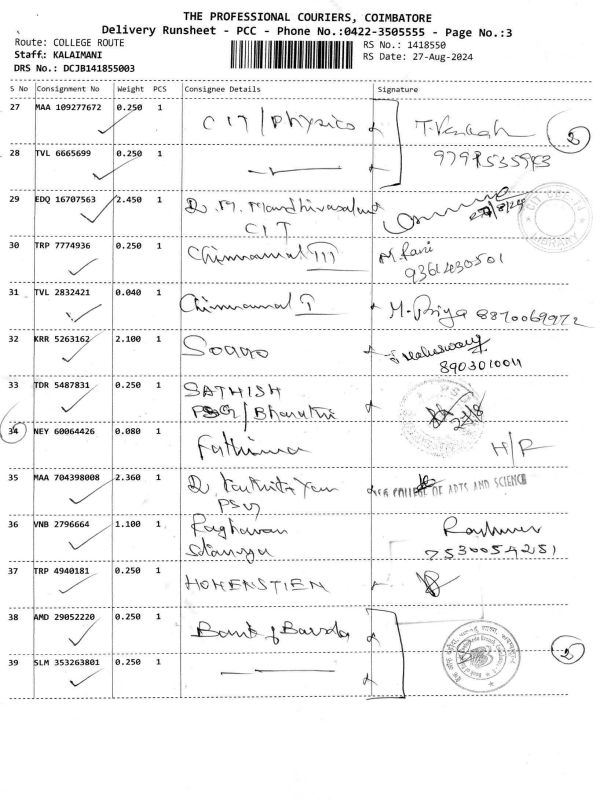 THE PROFESSIONAL COURIERS, COIMBATORE
Delivery Runsheet - PCC - Phone No.:0422-3505555 - Page No.:3
Route: COLLEGE ROUTE
RS No.: 1418550
Staff.: KALAIMANI
RS Date: 27-Aug-2024
DRS No.: DCJB141855003
S No Consignment No Weight PCS Consignee Details Signature
27 MAA 109277672 0.250 1 CIT/Physics
28 TVL 6665699 0.250 1
29 EDQ 16707563 2.450 1 CIT 27/8/24
30 TRP 7774936 0.250 1 Chinnamal III M. Rani
9361430501
31 TVL 2832421 0.040 1 Chinnamal I M. Priya 8870069972
32 KRR 5263162 2.100 1
8903010011
33 TDR 5487831 0.250 1 SATHISH
PSG/Bharathi 27/8
34 NEY 60064426 0.080 1 Fathima H/R
35 MAA 704398008 2.360 1 COLLEGE OF ARTS AND SCIENCE
PSG
36 VNB 2796664 1.100 1 Raghavan
7530054251
37 TRP 4940181 0.250 1 HOHENSTIEN
38 AMD 29052220 0.250 1 Bank of Baroda
39 SLM 353263801 0.250 1 2